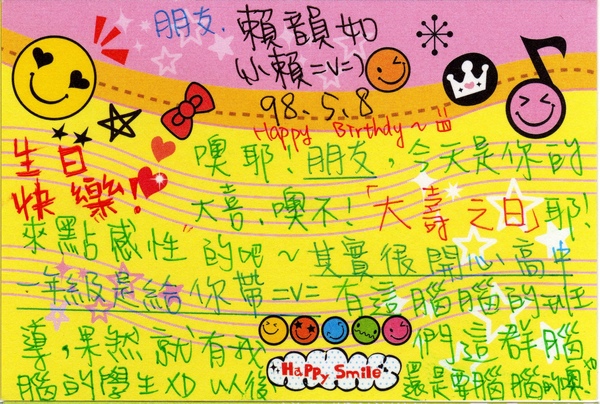 朋友. 賴韻如
(小賴=v=)
98.5.8
Happy Birthdy~
生日
快樂!
噢耶!朋友,今天是你的
大喜,噢不!「大壽之日」耶!
來點感性的吧~其實很開心高中
一年級是給你帶=v=有這腦腦的班
導,果然就有我們這群腦
腦的學生XD 以後還是要腦腦的噢!XD
Happy Smile